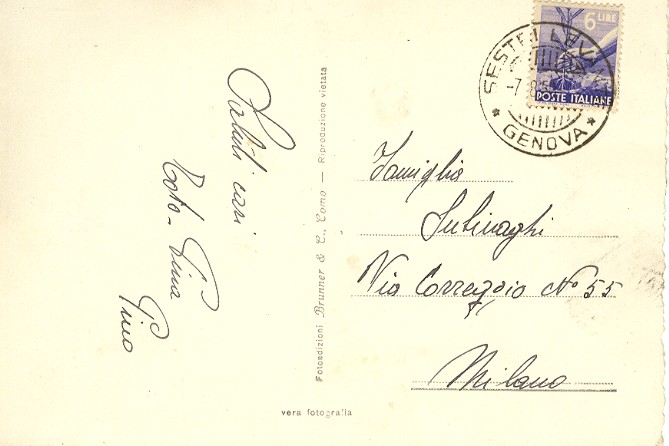 Saluti cari
Toto - Tina
Pino
Fotoedizioni Brunner & C., Como — Riproduzione vietata
vera fotografia
6 LIRE
POSTE ITALIANE
SESTRI LEV
* GENOVA *
Famiglia
Via Correggio N° 55
Milano